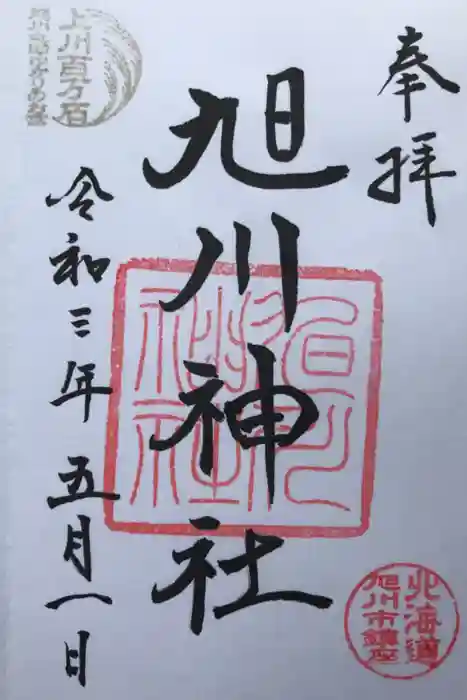 奉拝
旭川神社
令和三年五月一日
上川百万石
北海道
旭川市鎮座